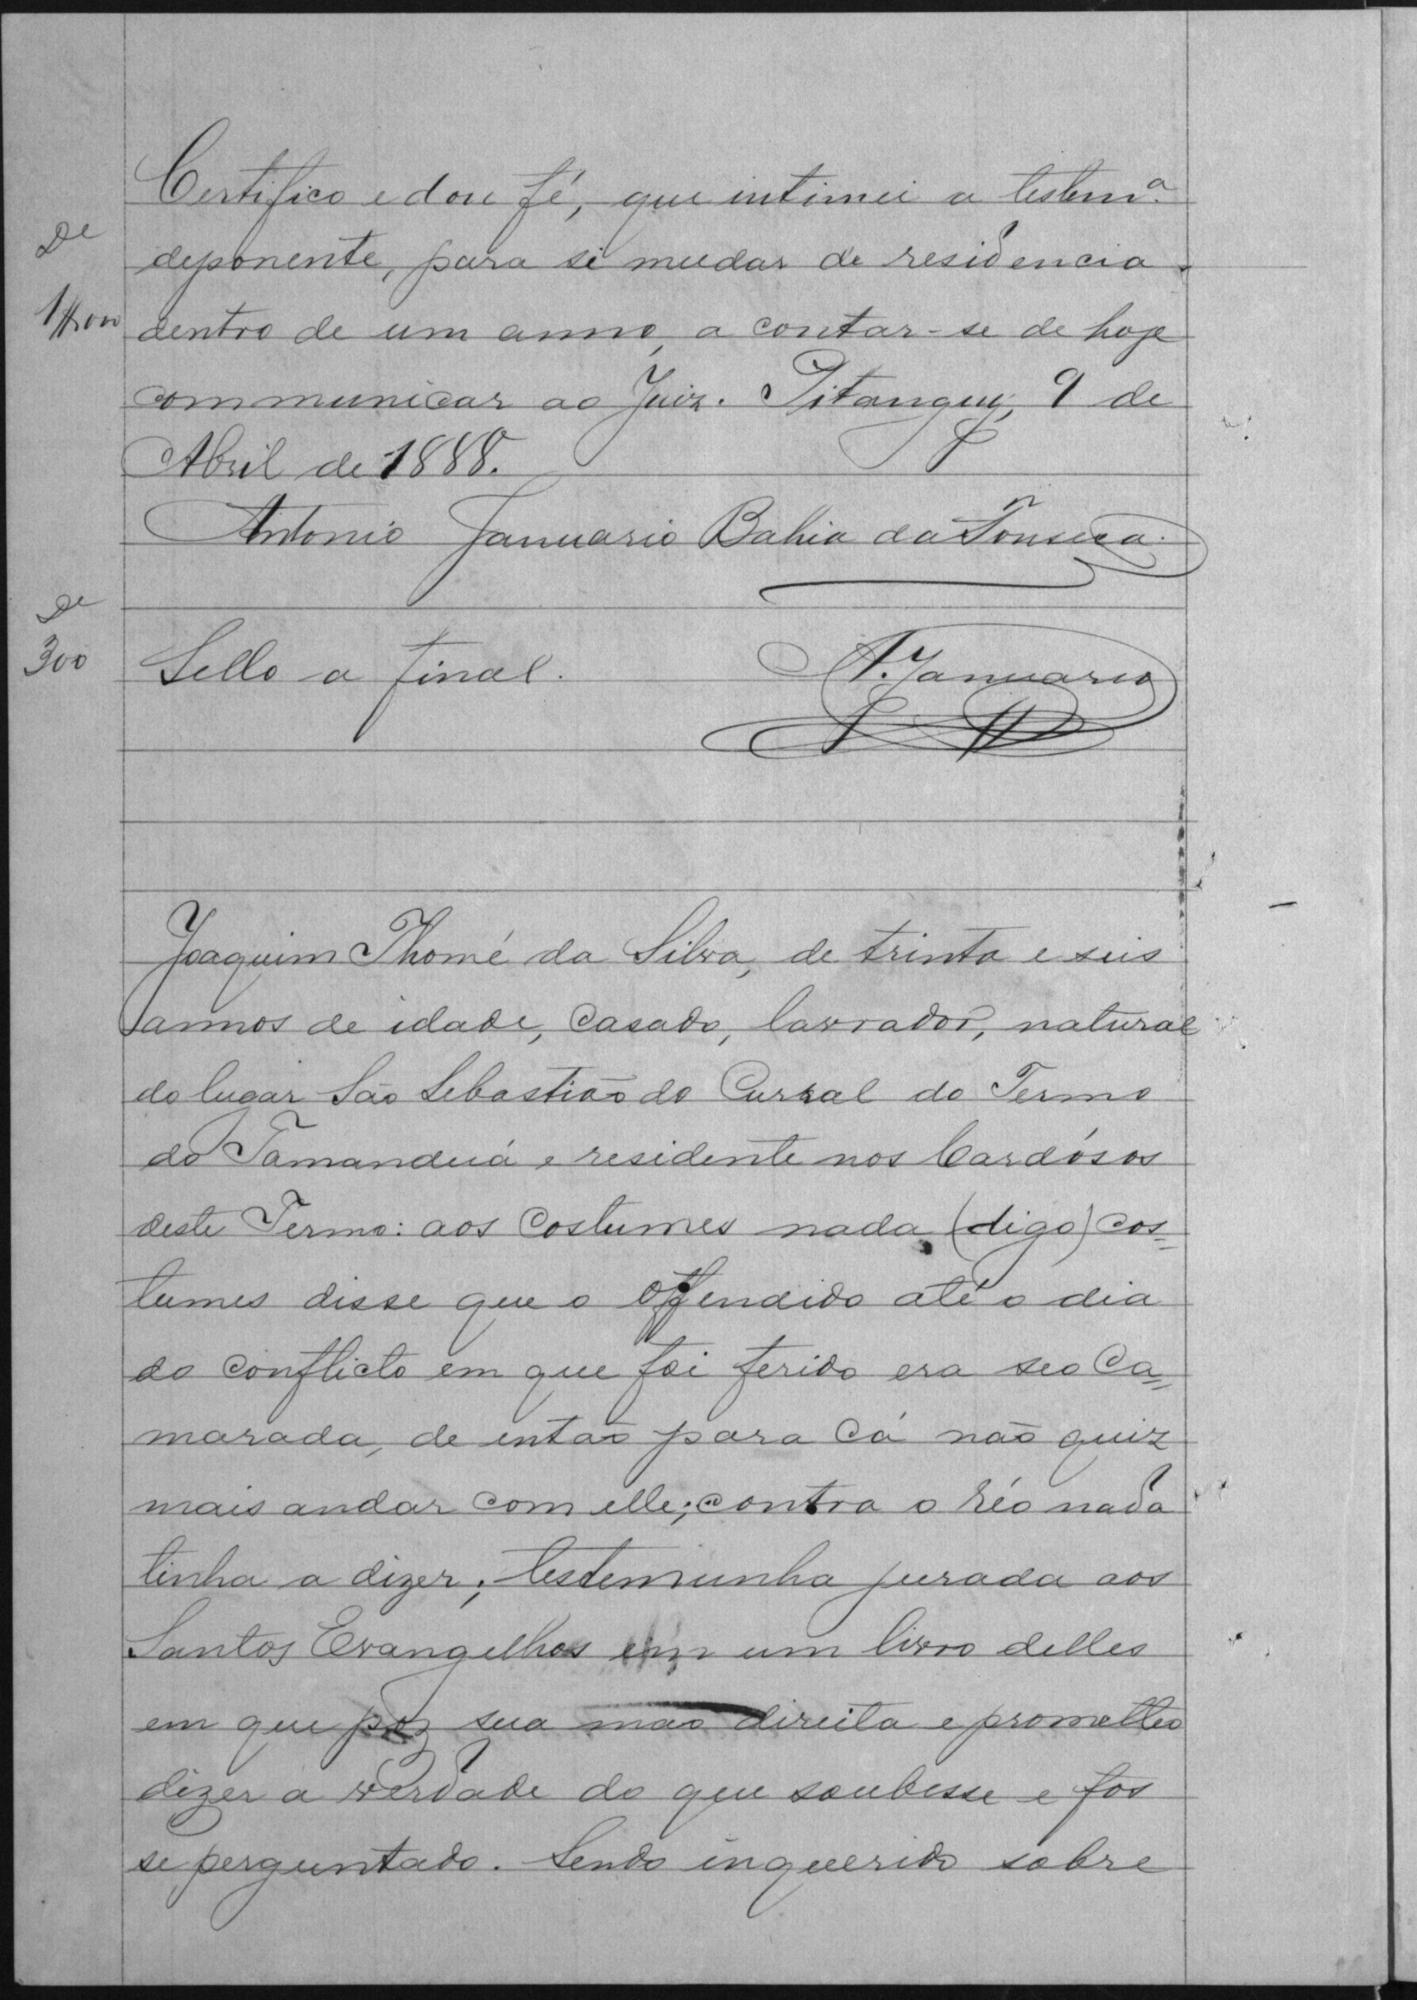 Certifico e dou fé, que intimei a testem.ª
De
deponente, para si mudar de residencia
1$000
dentro de um anno, a contar-se de hoje
communicar ao Juiz. Pitanguy, 9 de
Abril de 1888.
Antonio Januario Bahia da Fonseca.
De
300
Sello a final. A. Januario
Joaquim Thomé da Silva, de trinta e seis
annos de idade, casado, lavrador, natural
do lugar São Sebastião do Curral do Termo
do Tamanduá e residente nos Cardósos
deste Termo: aos costumes nada (digo) cos=
tumes disse que o offendido até o dia
do conflicto em que foi ferido era seo Ca=
marada, de então para cá não quiz
mais andar com elle; contra o réo nada
tinha a dizer; testemunha jurada aos
Santos Evangelhos em um livro delles
em que poz sua mão direita e prometteo
dizer a verdade do que soubesse e fos
se perguntado. Sendo inquerido sobre